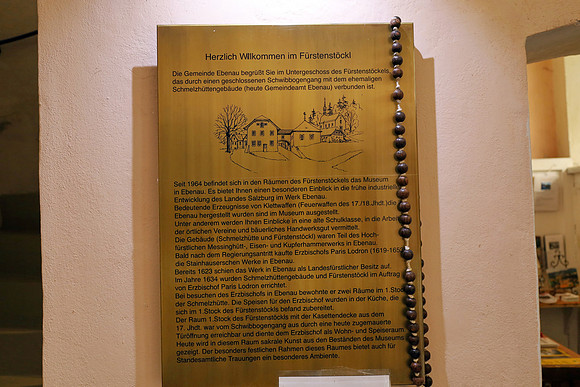 Herzlich Willkommen im Fürstenstöckl
Die Gemeinde Ebenau begrüßt Sie im Untergeschoss des Fürstenstöckels,
das durch einen geschlossenen Schwibbogengang mit dem ehemaligen
Schmelzhüttengebäude (heute Gemeindeamt Ebenau) verbunden ist.
Seit 1964 befindet sich in den Räumen des Fürstenstöckels das Museum
in Ebenau. Es bietet Ihnen einen besonderen Einblick in die frühe industrielle
Entwicklung des Landes Salzburg im Werk Ebenau.
Bedeutende Erzeugnisse von Klettwaffen (Feuerwaffen des 17./18.Jhdt.)die
Ebenau hergestellt wurden sind im Museum ausgestellt.
Unter anderem werden Ihnen Einblicke in eine alte Schulklasse, in die Arbeit
der örtlichen Vereine und bäuerliches Handwerksgut vermittelt.
Die Gebäude (Schmelzhütte und Fürstenstöckl) waren Teil des Hoch-
fürstlichen Messinghütt-, Eisen- und Kupferhammerwerks in Ebenau.
Bald nach dem Regierungsantritt kaufte Erzbischofs Paris Lodron (1619-1652)
die Stainhauserschen Werke in Ebenau.
Bereits 1623 schien das Werk in Ebenau als Landesfürstlicher Besitz auf.
Im Jahre 1634 wurden Schmelzhüttengebäude und Fürstenstöckl im Auftrag
von Erzbischof Paris Lodron errichtet.
Bei besuchen des Erzbischofs in Ebenau bewohnte er zwei Räume im 1.Stock
der Schmelzhütte. Die Speisen für den Erzbischof wurden in der Küche, die
sich im 1.Stock des Fürstenstöckls befand zubereitet.
Der Raum 1.Stock des Fürstenstöckls mit der Kasettendecke aus dem
17. Jhdt. war vom Schwibbogengang aus durch eine heute zugemauerte
Türöffnung erreichbar und diente dem Erzbischof als Wohn- und Speiseraum.
Heute wird in diesem Raum sakrale Kunst aus den Beständen des Museums
gezeigt. Der besonders festlichen Rahmen dieses Raumes bietet auch für
Standesamtliche Trauungen ein besonderes Ambiente.